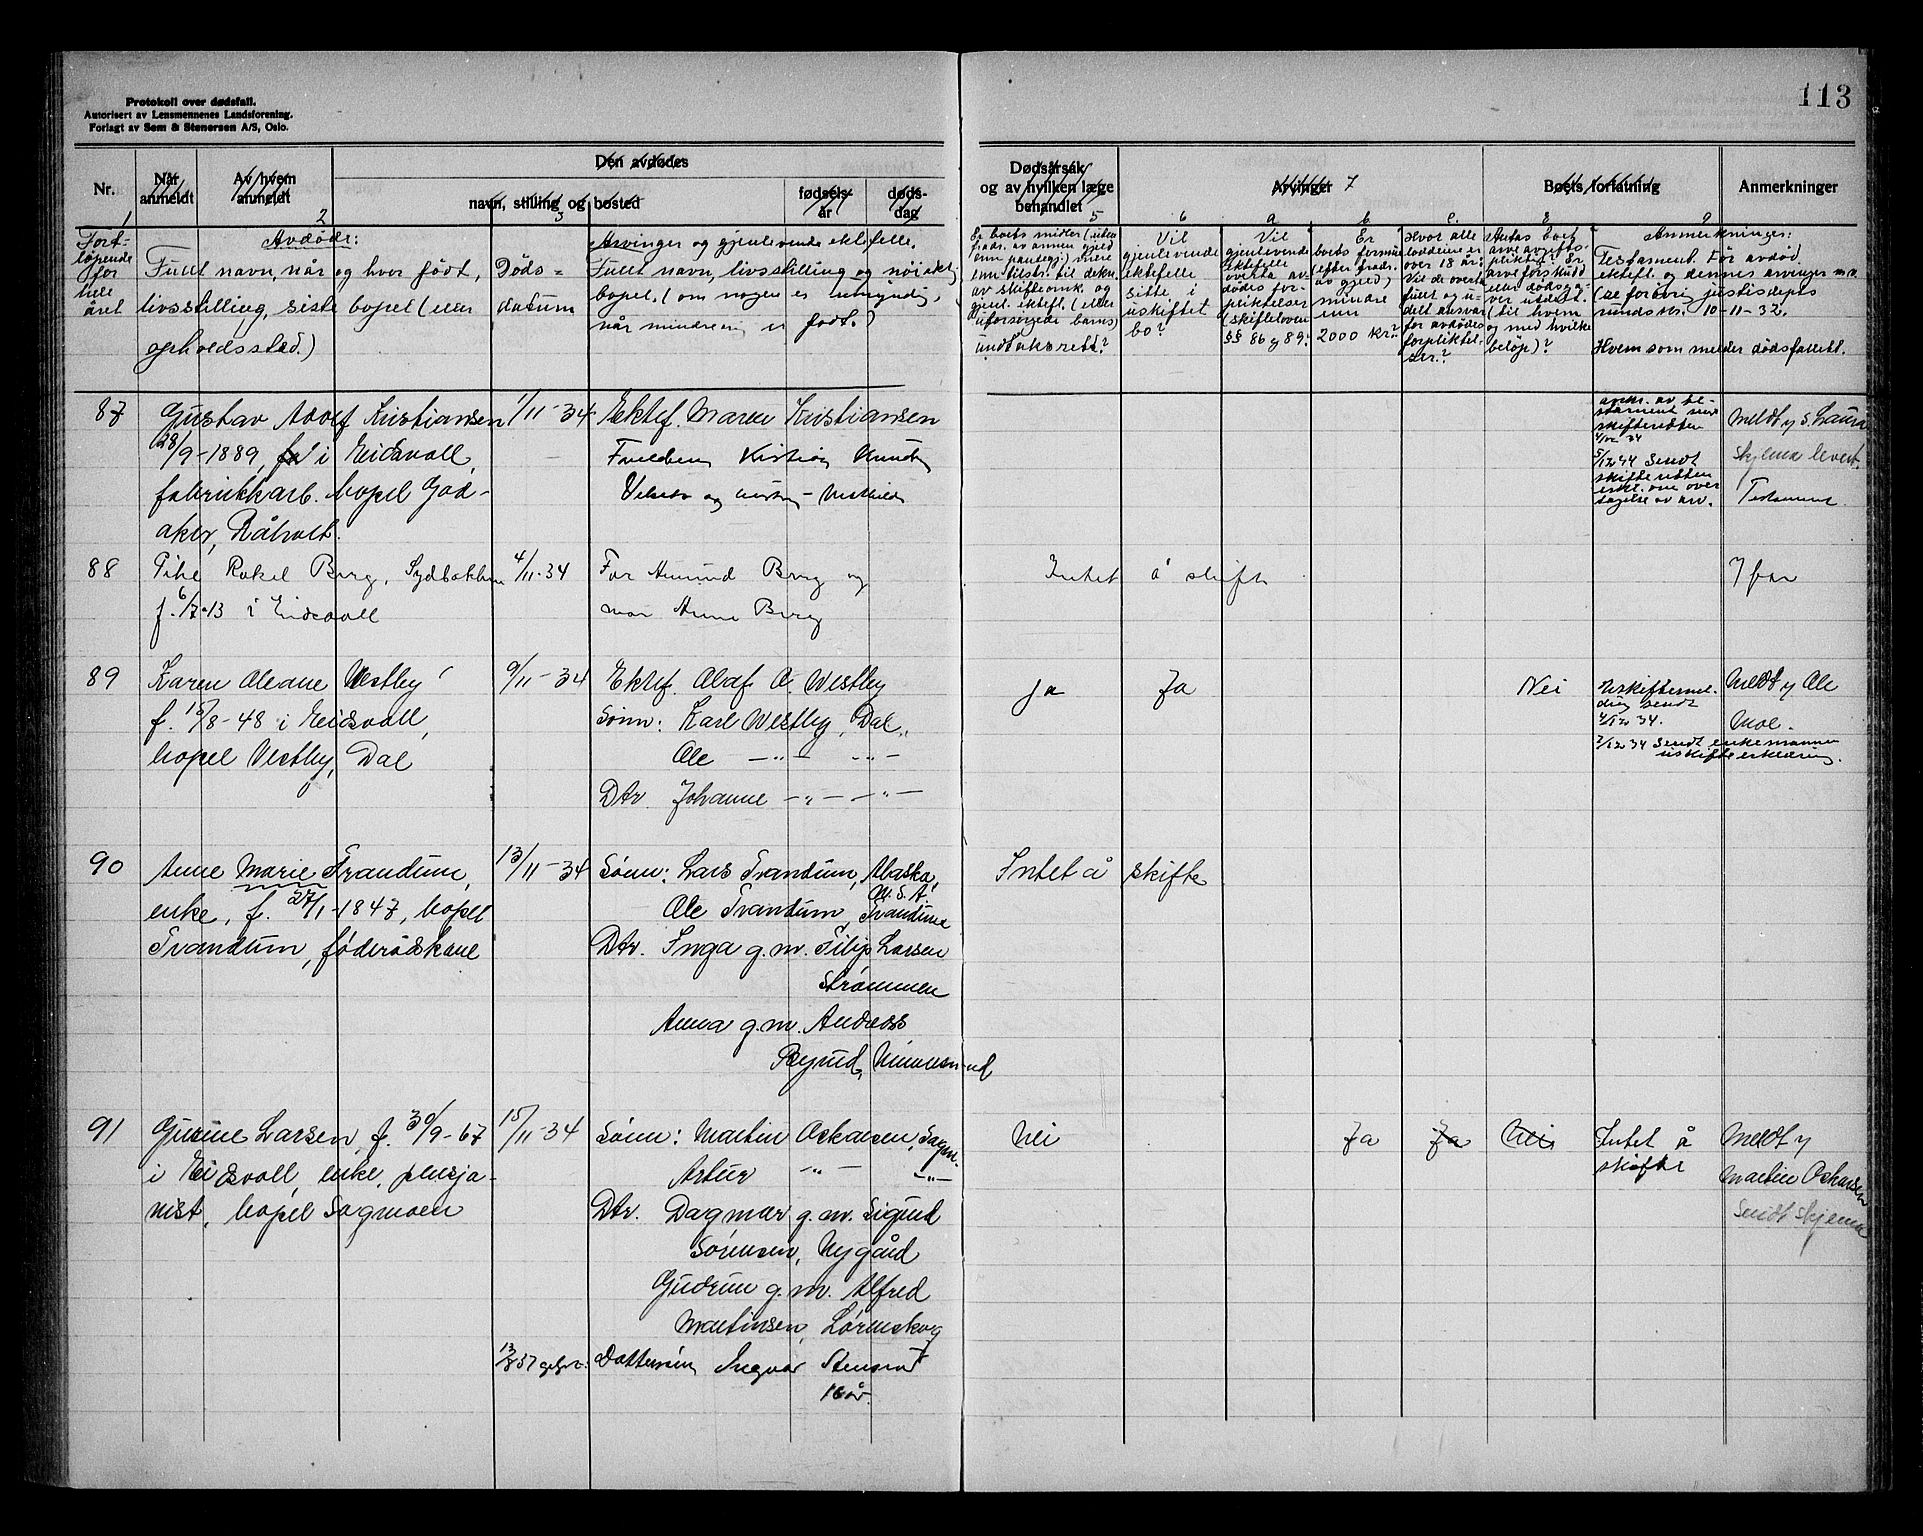 Protokoll over dødsfall.
Autorisert av Lensmennenes Landsforening.
Forlagt av Sem & Stenersen A/S, Oslo.
113
Nr.
Når anmeldt
Av hvem anmeldt
Den avdødes
navn, stilling og bosted
fødsels-år
døds-dag
Dødsårsak
og av hvilken læge
behandlet
Arvinger 7
Boets forfatning
Anmerkninger
1 2 3 5 6 a b. c. 8 9
Fort-
løpende
for
hele
året
Avdøde:
Fullt navn, når og hvor født,
livsstilling, siste bopel (eller
opholdssted.)
Døds-
datum
Arvinger og gjenlevende ektefelle.
Fullt navn, livsstilling og nøiaktig
bopel. (om nogen er umyndig,
når mindreårig er født.)
Er boets midler (uten
fradr. av annen gjeld
enn pantegj.) mere
enn tilstr. til dekn.
av skifteomk. og
gjenl. ektef. (eller
uforsørgede barns)
undtaksrett?
Vil
gjenlevende
ektefelle
sitte i
uskiftet
bo?
Vil
gjenlevende
ektefelle
overta av-
dødes for-
pliktelser
(skifteloven
§§ 86 og 89.
Er
boets formue
(efter fradr.
av gjeld)
mindre
enn
2000 kr.?
Hvor alle
loddeiere er
over 18 år:
Vil de overta
fullt og u-
delt ansvar
for avdødes
forpliktel-
ser?
Antas boet
arveavgifts-
pliktig? Er
arveforskudd
eller dødsga-
ver utdelt.
(til hvem
og med hvilke
beløp)?
Anmerkninger:
Testament. Før avdød.
ektef. og dennes arvinger m.v.
(se forøvrig justisdepts
rundskr. 10-11-32.
Hvem som melder dødsfallet.
87
Gustav Adolf Kristiansen
28/9-1889, i Eidsvoll,
fabrikkarb. bopel God-
aker, Råholt.
1/11-34
Ektef. Maren Kristiansen
av te-
stament
skifteretten
4/12 34
5/12 34 Sendt
skifteretten
erkl. om over
tagelse av arv.
Meldt
Skjema levert.
Testament
88
Pike Rakel Berg, Sydbakken
f. 6/7-13 i Eidsvoll
4/11-34
Far Amund Berg og
mor Anne Berg
Intet å skifte
7 før
89
Karen Oleane Vestby
f. 10/8-48 i Eidsvoll,
bopel Vestby, Dal
9/11-34
Ektef. Olaf O. Vestby
Sønn: Karl Vestby, Dal,
Ole —„— —„—
Dtr. Johanne —„— —„—
Ja
Ja
Nei
Uskiftemel-
ding sendt
4/12 34.
7/12 34 Sendt enkemannen
uskifteerklæring.
Meldt y Ole
Moe.
90
Anne Marie Trandum,
enke, f. 27/1-1847, bopel
Trandum, føderådskone
13/11-34
Sønn: Lars Trandum, Alaska,
U.S.A.
Ole Trandum, Trandum
Dtr. Inga g.m. Filip Larsen
Strømmen
Anna g.m. Andreas
Byrud, Minnesund
Intet å skifte
91
Gurine Larsen, f. 30/9-67
i Eidsvoll, enke, pensjo-
nist, bopel Sagmoen
15/11-34
Sønn: Martin Oskarsen, Sagm.
Artur —„— —„—
Dtr. Dagmar g.m. Sigurd
Sørensen, Nygård
Gudrun g.m. Alfred
Martinsen, Lørenskog
Dattersønn Ingvar Stensrud
16 år.
Nei
Ja
Ja
Nei
Intet å
skifte
Meldt y
Martin Oskarsen
Sendt skjema